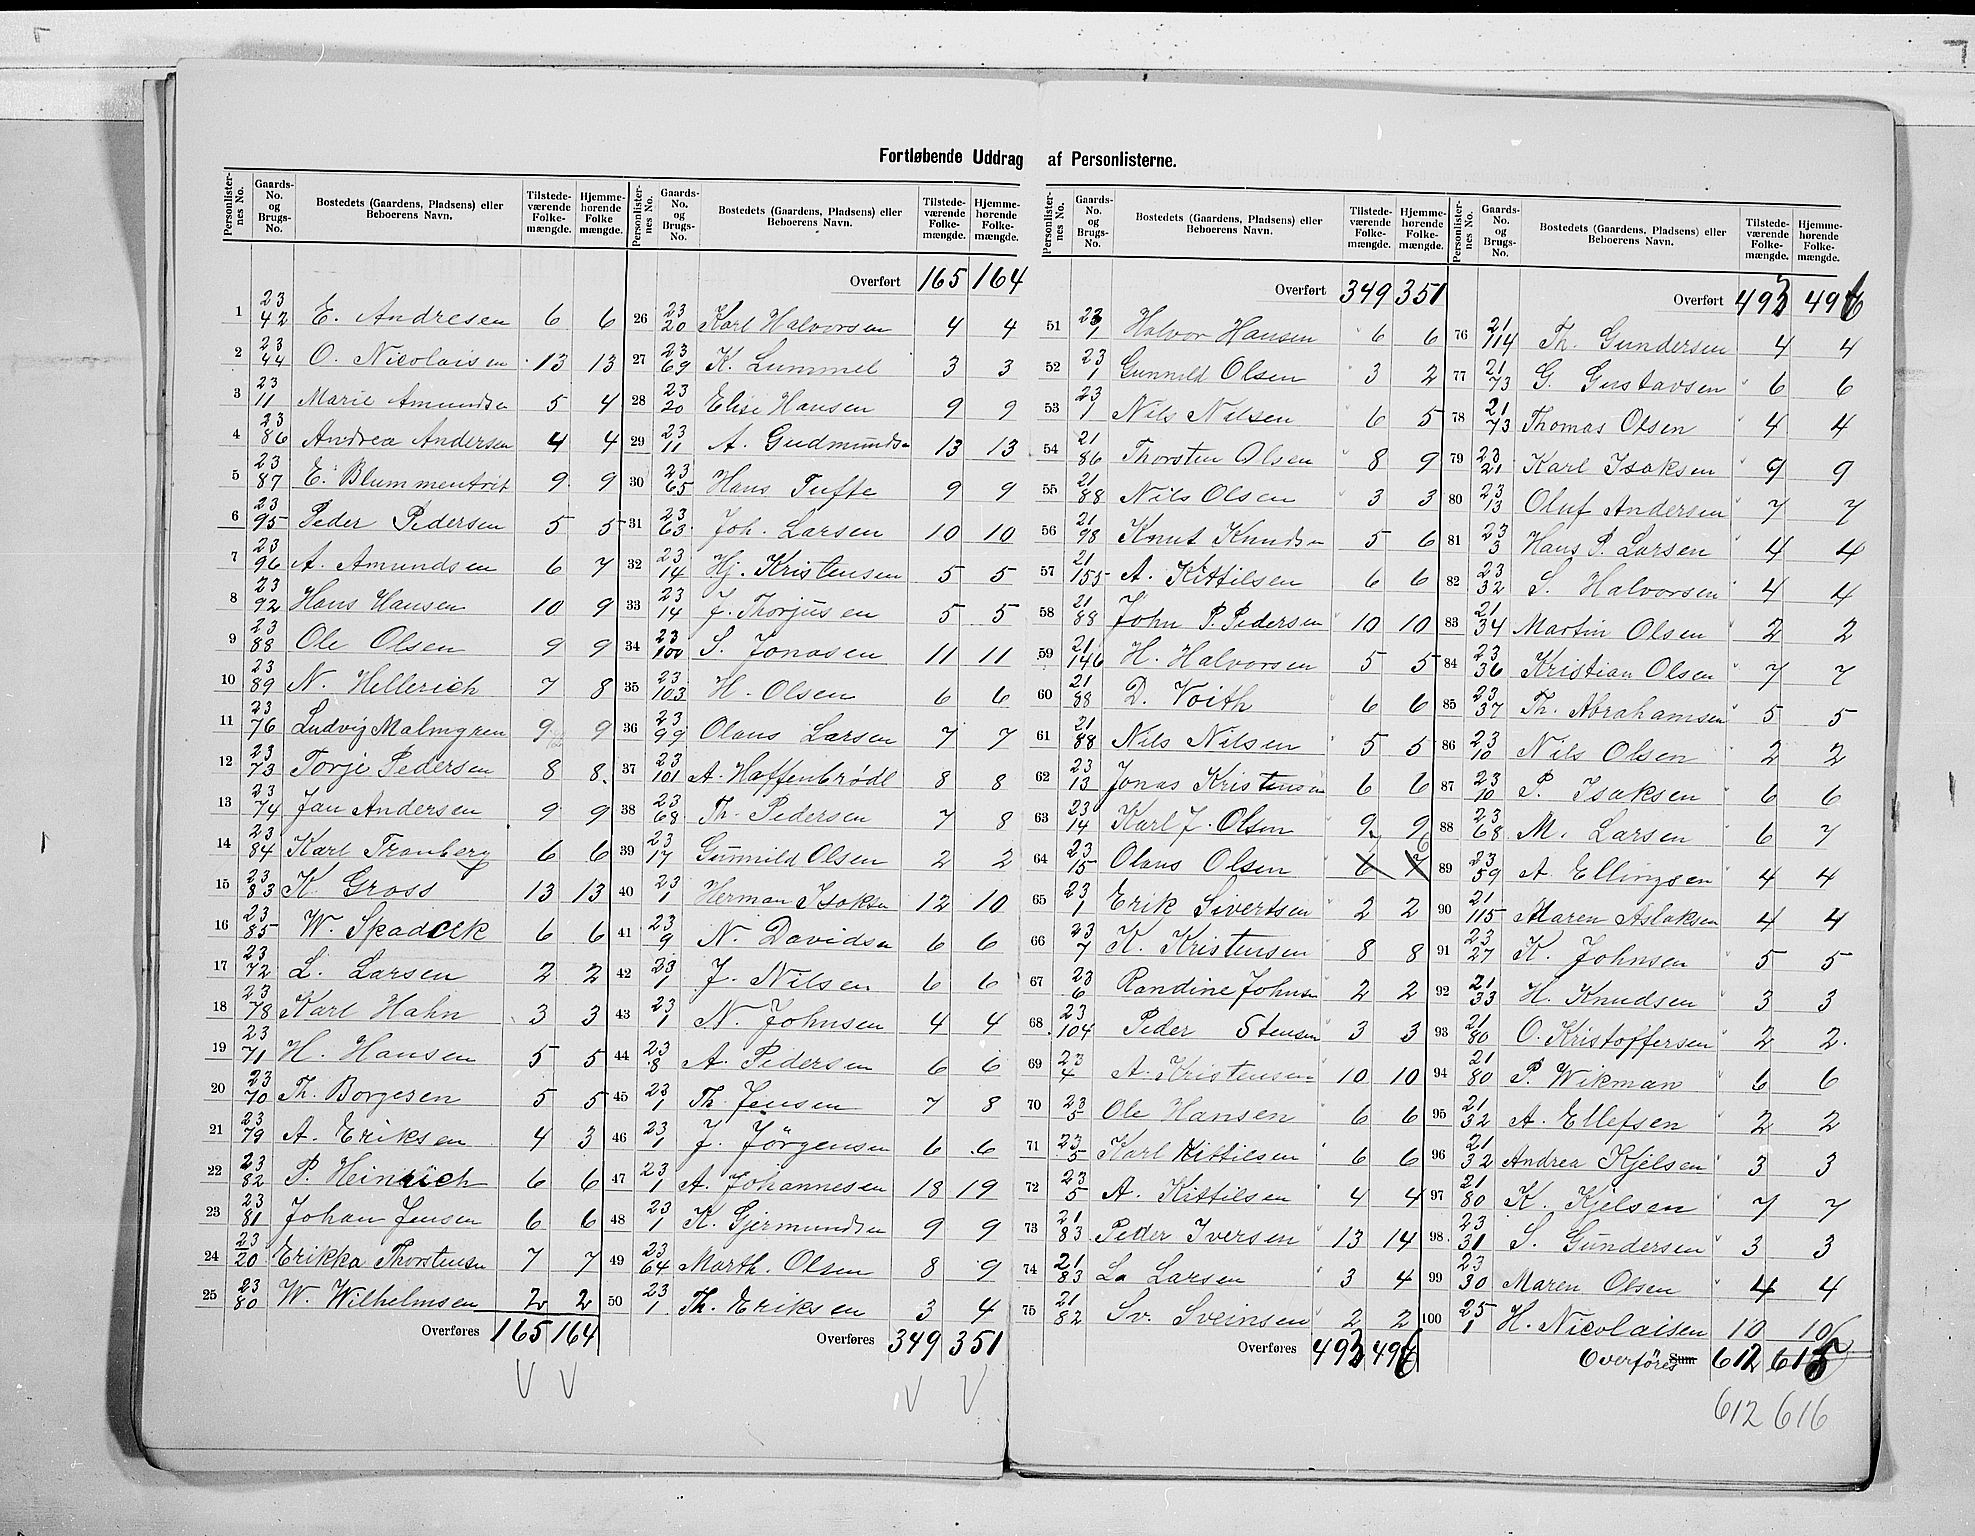 Fortløbende Uddrag af Personlisterne.
Personlisternes No. Gaards-No. og Brugs-No. Bostedets (Gaardens, Pladsens) eller Beboerens Navn. Tilstedeværende Folkemængde. Hjemmehørende Folkemængde.
1 23/42 E. Andresen 6 6
2 23/44 O. Nicolaisen 13 13
3 23/11 Marie Amundsen 5 4
4 23/86 Andrea Andersen 4 4
5 23/87 E. Blummentrit 9 9
6 23/95 Peder Pedersen 5 5
7 23/96 A. Amundsen 6 7
8 23/92 Hans Hansen 10 9
9 23/88 Ole Olsen 9 9
10 23/89 N. Hellerich 7 8
11 23/76 Ludvig Malmgren 9 9
12 23/73 Torje Pedersen 8 8.
13 23/74 Jan Andersen 9 9
14 23/84 Karl Tranberg 6 6
15 23/83 K. Gross 13 13
16 23/85 W. Skadack 6 6
17 23/72 L. Larsen 2 2
18 23/78 Karl Hahn 3 3
19 23/71 H. Hansen 5 5
20 23/70 Th. Borgesen 5 5
21 23/79 A. Eriksen 4 3
22 23/82 P. Heinrich 6 6
23 23/81 Johan Jensen 6 6
24 23/20 Erikka Thorstensen 7 7
25 23/80 W. Wilhelmsen 2 2
Overføres 165 164
Personlisternes No. Gaards-No. og Brugs-No. Bostedets (Gaardens, Pladsens) eller Beboerens Navn. Tilstedeværende Folkemængde. Hjemmehørende Folkemængde.
Overført 165 164
26 23/20 Karl Halvorsen 4 4
27 23/69 K. Lummel 3 3
28 23/20 Elise Hansen 9 9
29 23/11 A. Gudmundsn 13 13
30 23/65 Hans Tufte 9 9
31 23/63 Joh. Larsen 10 10
32 23/14 Hj. Kristensen 5 5
33 23/14 J. Thorjusen 5 5
34 23/100 S. Jonasen 11 11
35 23/103 H. Olsen 6 6
36 23/99 Olaus Larsen 7 7
37 23/101 A. Haffenbrödl 8 8
38 23/68 Th. Pedersen 7 8
39 23/17 Gunnild Olsen 2 2
40 23/1 Herman Isaksn 12 10
41 23/9 N. Davidsn 6 6
42 23/1 J. Nilsen 6 6
43 23/1 N. Johnsen 4 4
44 23/8 A. Pedersen 6 6
45 23/1 Th. Jensen 7 8
46 23/1 J. Jörgensen 6 6
47 23/1 A. Johannesen 18 19
48 23/1 K. Gjermundsn 9 9
49 23/64 Marth. Olsen 8 9
50 23/1 Th. Eriksen 3 4
Overføres 349 351
Personlisternes No. Gaards-No. og Brugs-No. Bostedets (Gaardens, Pladsens) eller Beboerens Navn. Tilstedeværende Folkemængde. Hjemmehørende Folkemængde.
Overført 349 351
51 23/1 Halvor Hansen 6 6
52 23/1 Gunnild Olsen 3 2
53 23/1 Nils Nilsen 6 5
54 21/86 Thorsten Olsen 8 9
55 21/88 Nils Olsen 3 3
56 21/98 Knut Knudsn 5 6
57 21/155 A. Kittilsen 6 6
58 21/88 John P. Pedersen 10 10
59 21/146 H. Halvorsen 5 5
60 21/88 D. Voith 6 6
61 21/88 Nils Nilsen 5 5
62 23/13 Jonas Kristensen 6 6
63 23/14 Karl J. Olsen 9 9
64 23/15 Olaus Olsen 6 7
65 23/1 Erik Sivertsen 2 2
66 23/7 K. Kristensen 8 8
67 23/6 Randine Johnsn 2 2
68 23/104 Peder Stensen 3 3
69 23/4 A. Kristensen 10 10
70 23/5 Ole Hansen 6 6
71 23/5 Karl Kittilsen 6 6
72 23/5 A. Kittilsen 4 4
73 21/83 Peder Iversen 13 14
74 21/83 La Larsen 3 4
75 21/82 Sv. Sveinsen 2 2
Overføres 493 496
Personlisternes No. Gaards-No. og Brugs-No. Bostedets (Gaardens, Pladsens) eller Beboerens Navn. Tilstedeværende Folkemængde. Hjemmehørende Folkemængde.
Overført 493 496
76 21/114 Th. Gundersen 4 4
77 21/73 G. Gustavsen 6 6
78 21/73 Thomas Olsen 4 4
79 23/21 Karl Isaksen 9 9
80 23/13 Oluf Andersen 7 7
81 23/3 Hans P. Larsen 4 4
82 23/32 S. Halvorsen 4 4
83 21/34 Martin Olsen 2 2
84 23/36 Kristian Olsen 7 7
85 23/37 Th. Abrahamsen 5 5
86 23/10 Nils Olsen 2 2
87 23/10 P. Isaksen 6 6
88 23/68 M. Larsen 6 7
89 23/59 A. Ellingsen 4 4
90 21/115 Maren Aslaksen 4 4
91 23/27 K. Johnsen 5 5
92 21/33 H. Knudsen 3 3
93 21/80 O. Kristoffersen 2 2.
94 21/80 P. Wikman 6 6
95 21/32 A. Ellefsen 2 2
96 21/32 Andrea Kjelsen 3 3
97 21/80 K. Kjelsen 7 7
98 23/31 S. Gundersen 3 3
99 23/30 Maren Olsen 4 4
100 25/1 H. Nicolaisen 10 10
Overföres Sum 612 615
612 616